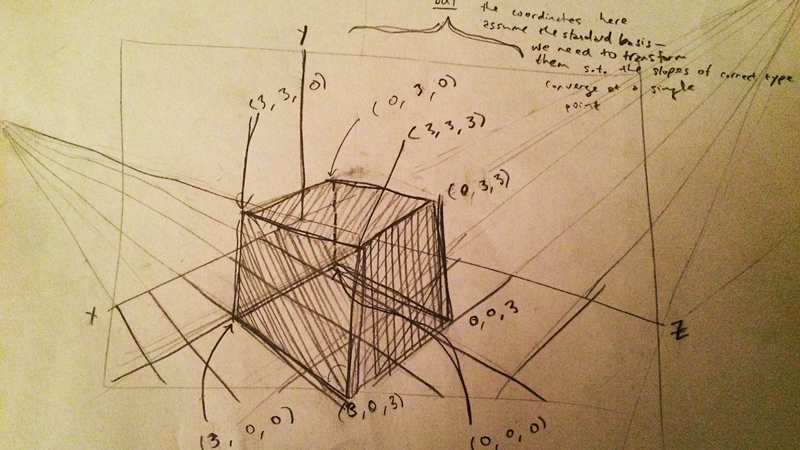 but
the coordinates here
assume the standard basis—
we need to transform
them s.t. the slopes of correct type
converge at a single
point
Y
(3, 3, 0)
(0, 3, 0)
(3, 3, 3)
(0, 3, 3)
X
0, 0, 3
Z
(3, 0, 0)
(3, 0, 3)
(0, 0, 0)